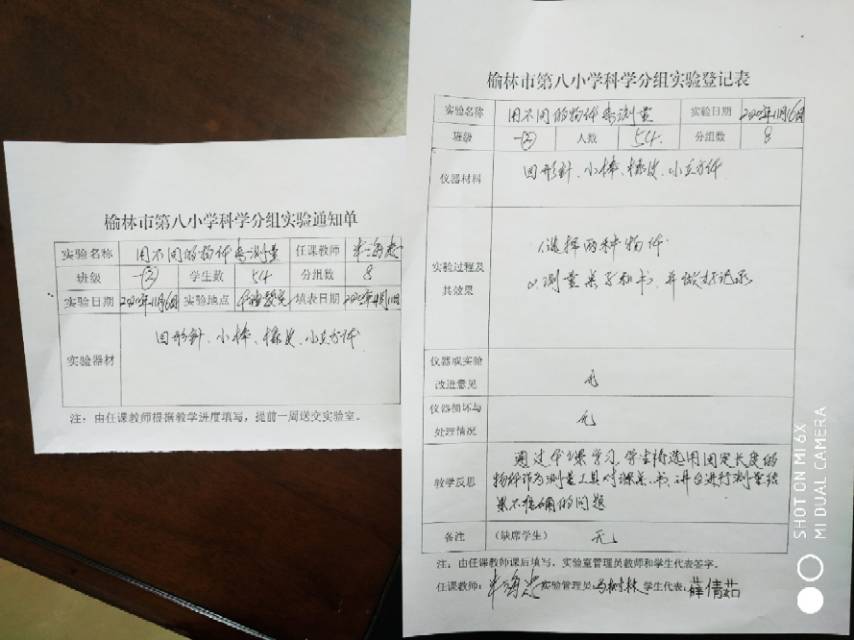 榆林市第八小学科学分组实验通知单
实验名称 用不同的物体来测量 任课教师
班级 一(2) 学生数 54 分组数 8
实验日期 2020年11月6日 实验地点 填表日期
实验器材 回形针、小棒、橡皮、小立方体
注：由任课教师根据教学进度填写，提前一周送交实验室。
榆林市第八小学科学分组实验登记表
实验名称 用不同的物体来测量 实验日期 2020年11月6日
班级 一(2) 人数 54 分组数 8
仪器材料 回形针、小棒、橡皮、小立方体
实验过程及
其效果
1.选择两种物体
2.测量桌子和书，并做好记录
仪器或实验
改进意见 无
仪器损坏与
处理情况 无
教学反思 通过本课学习，学生能选用固定长度的
物体作为测量工具对课桌、书、讲台进行测量结
果不准确的问题
备注 （缺席学生） 无
注：由任课教师课后填写，实验室管理员教师和学生代表签字。
任课教师： 实验管理员： 学生代表：薛倩茹
SHOT ON MI 6X
MI DUAL CAMERA